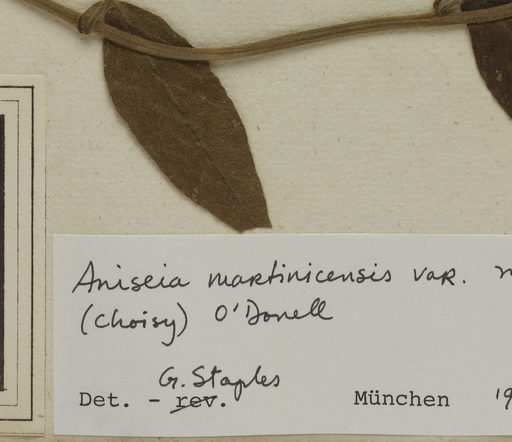 Aniseia martinicensis var.
(Choisy) O'Donell
G. Staples
Det. - rev. München '19